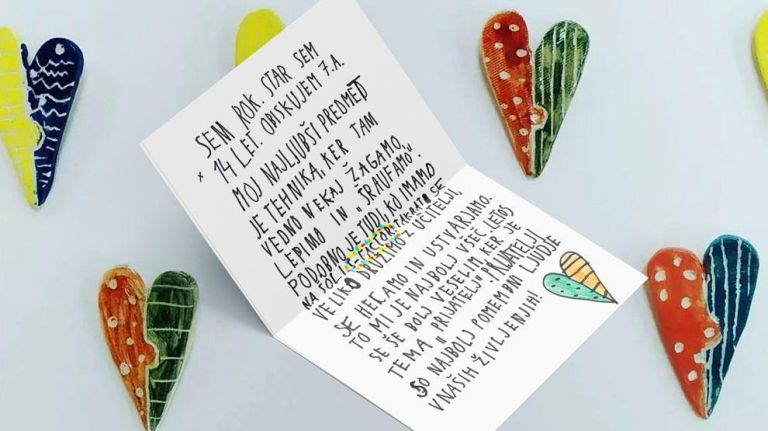 SEM ROK. STAR SEM
14 LET. OBISKUJEM 7.A.
MOJ NAJLUBŠI PREDMET
JE TEHNIKA, KER TAM
VEDNO NEKAJ ŽAGAMO,
LEPIMO IN "ŠRAUFAMO."
PODOBNO JE TUDI, KO IMAMO
NA ŠOLI TAKRAT SE
VELIKO DRUŽIMO Z UČITELJI,
SE HECAMO IN USTVARJAMO.
TO MI JE NAJBOLJ VŠEČ. LETOS
SE ŠE BOLJ VESELIM KER JE
TEMA "PRIJATELJ". PRIJATELJI
SO NAJBOLJ POMEMBNI LJUDJE
V NAŠIH ŽIVLJENJIH!